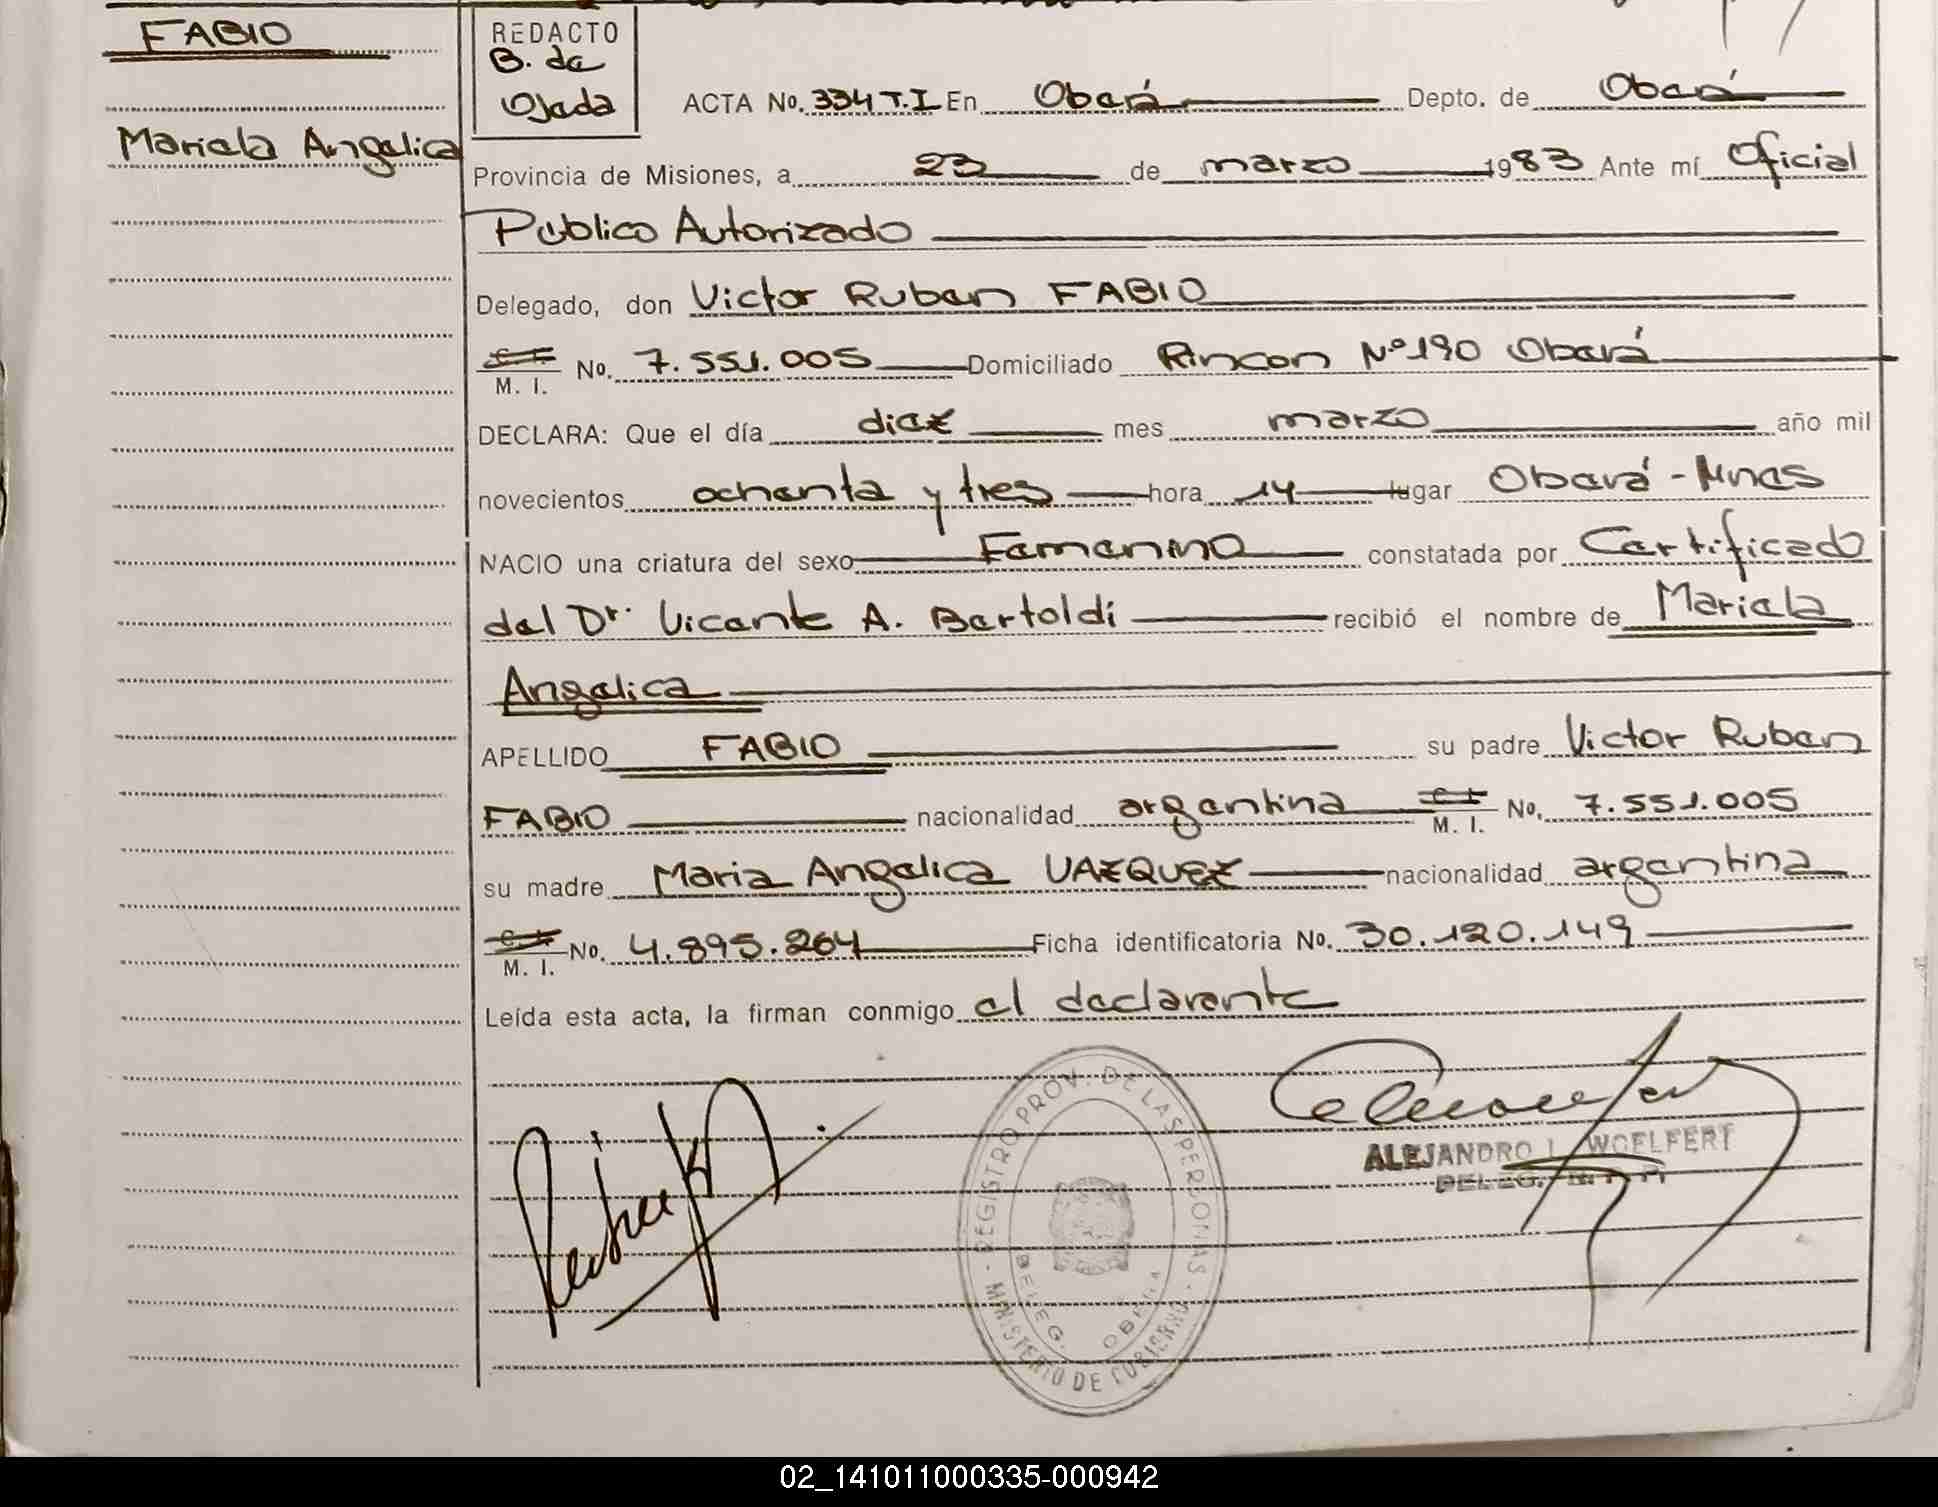 FABIO
Mariela Angelica
REDACTO
B. de
Ojeda
ACTA No. 334 T.I En Oberá Depto. de Oberá
Provincia de Misiones, a 23 de marzo 1983 Ante mí Oficial
Publico Autorizado
Delegado, don Victor Ruben FABIO
C. I. M. I. No. 7.551.005 Domiciliado Rincon Nº 190 Oberá
DECLARA: Que el día diez mes marzo año mil
novecientos ochenta y tres hora 14 lugar Oberá - Mnes
NACIO una criatura del sexo Femenino constatada por Certificado
del Dr. Vicente A. Bertoldi recibió el nombre de Mariela
Angelica
APELLIDO FABIO su padre Victor Ruben
FABIO nacionalidad argentina C. I. M. I. No. 7.551.005
su madre Maria Angelica VAZQUEZ nacionalidad argentina
C. I. M. I. No. 4.895.264 Ficha identificatoria No. 30.120.149
Leída esta acta, la firman conmigo el declarante
REGISTRO PROV. DE LAS PERSONAS
DELEG. OBERA
MINISTERIO DE GOBIERNO
ALEJANDRO L. WOELFERT
02_141011000335-000942